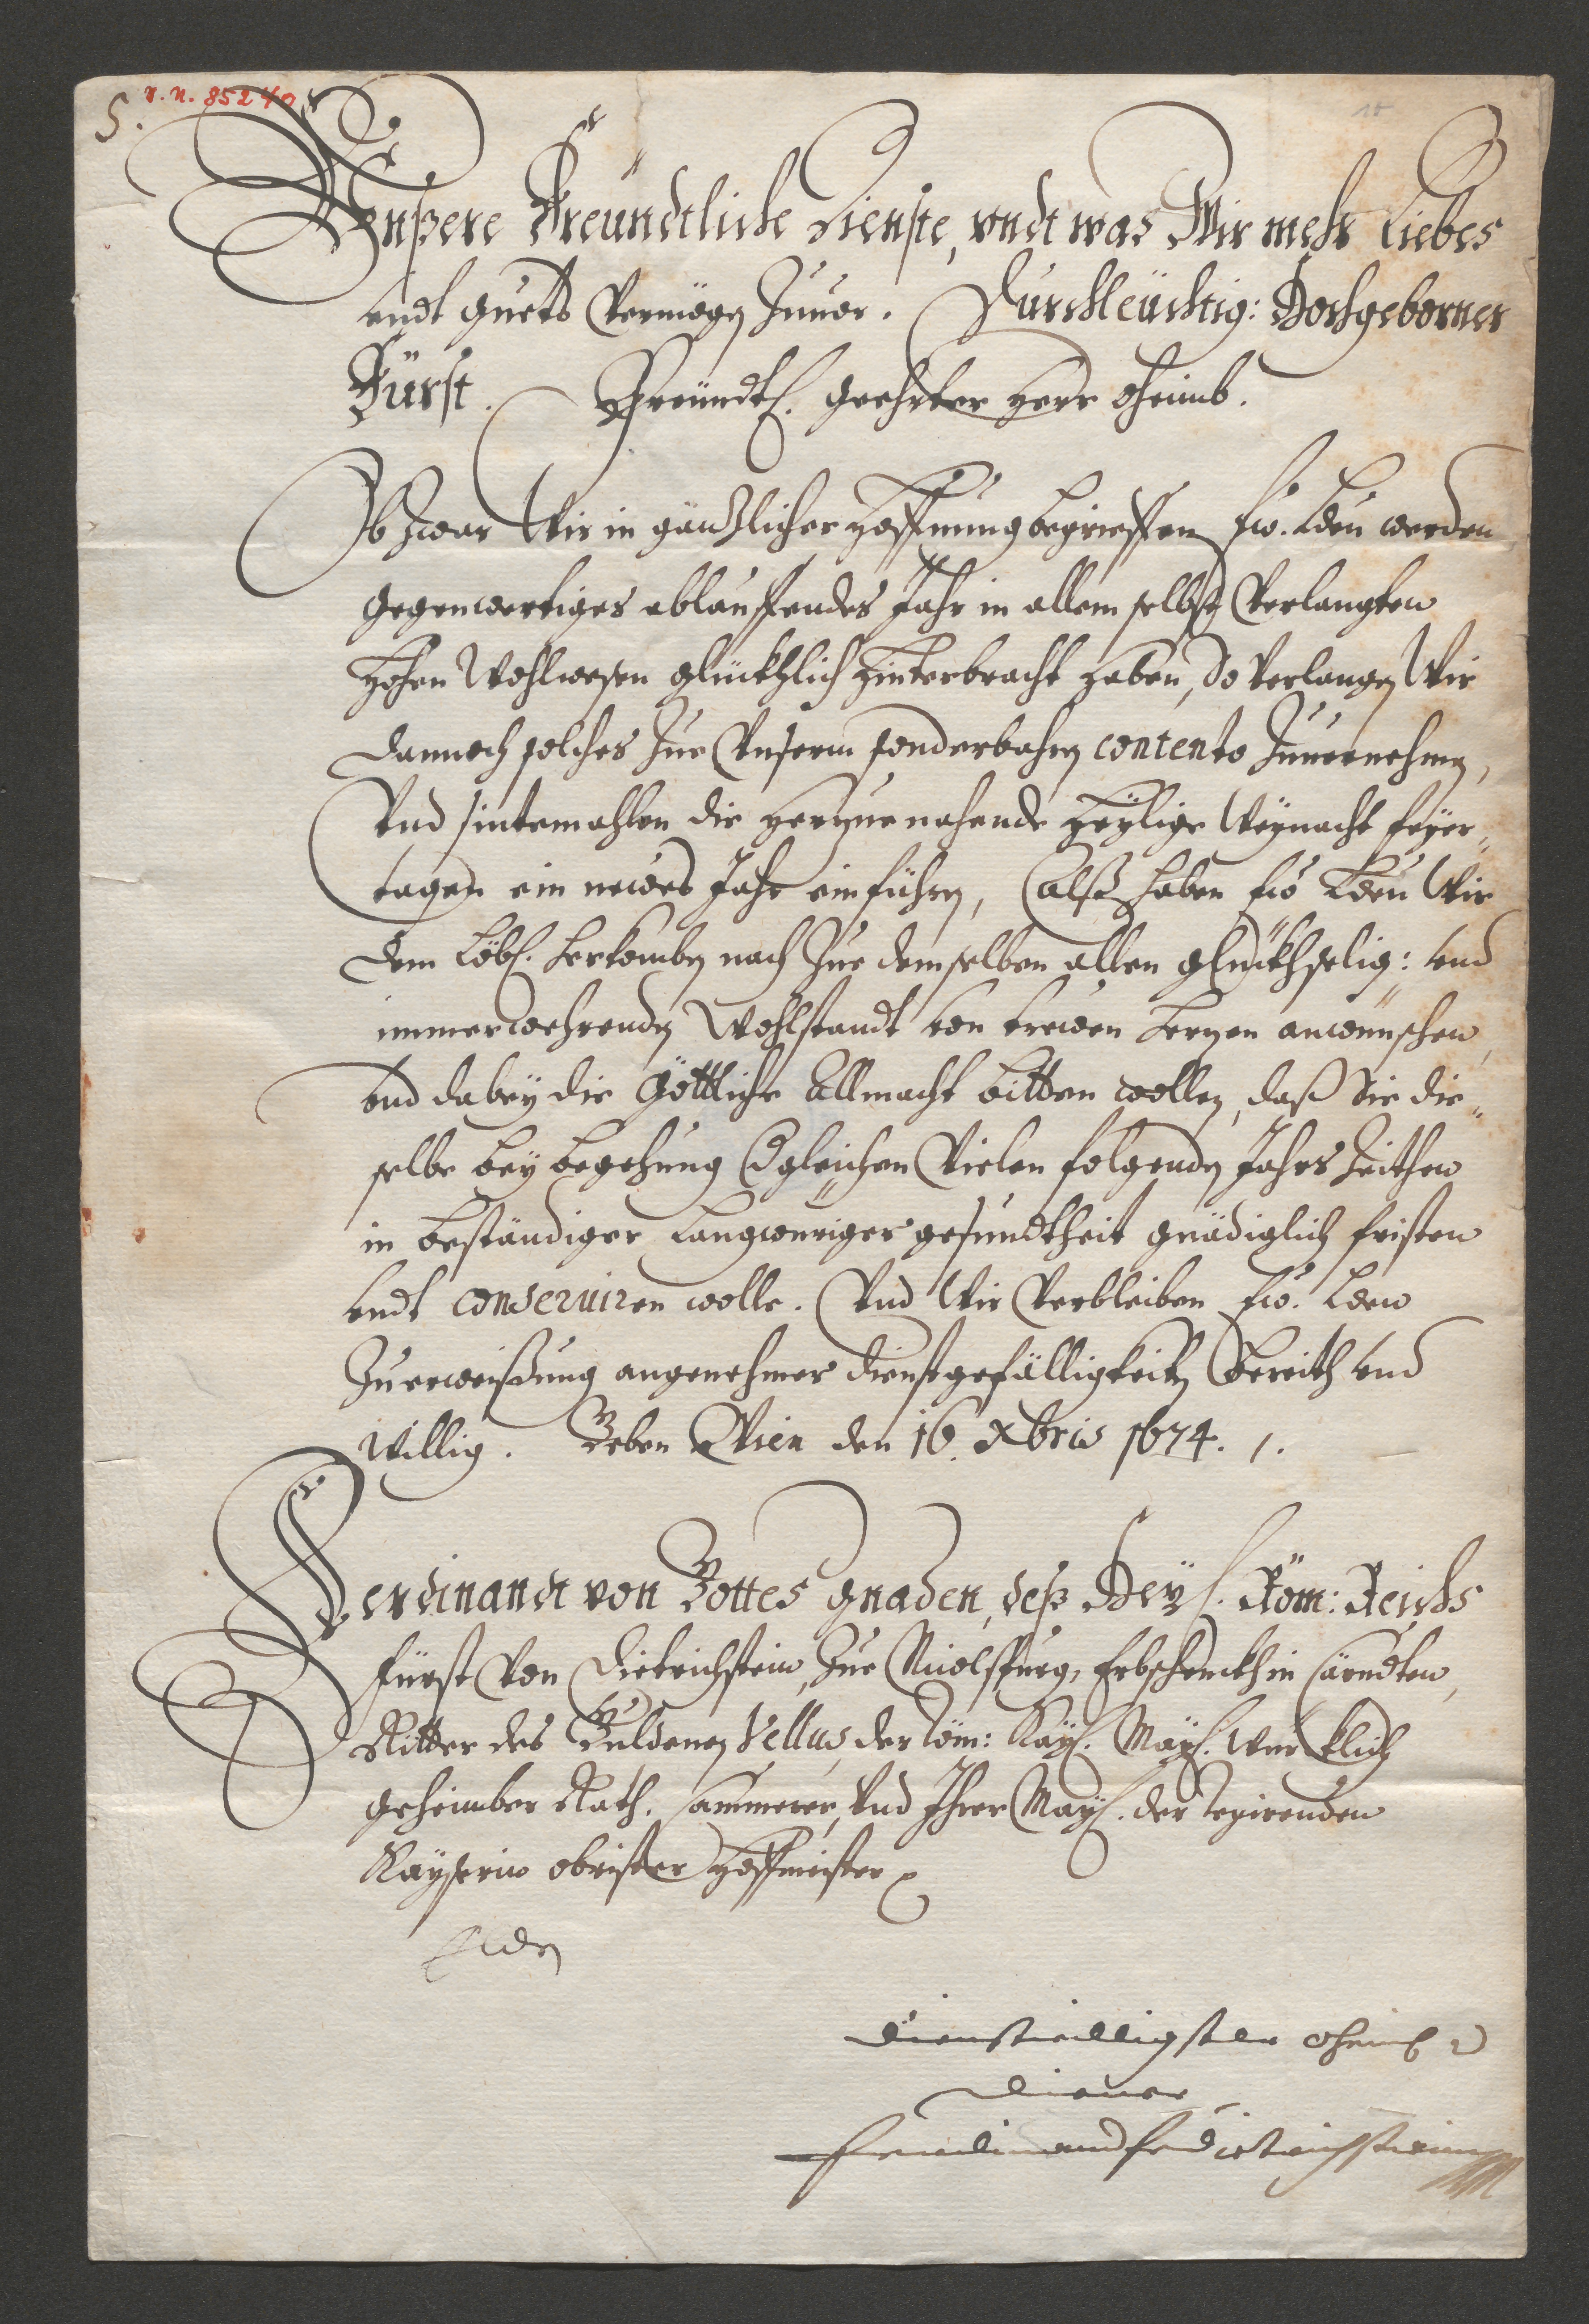 S. v. n. 85240
15
Vnßere Freündtliche Dienste, vndt was Wir mehr Liebes
vndt guets Vermögen Zuuor. Durchleüchtig: Hochgeborner
Fürst. Freündtl. geehrter Herr Oheimb.
Ob zwar Wir in gäntzlicher Hoffnung begrieffen Ew. Lden werden
gegenwertiges ablauffendes Jahr in allem selbst Verlangten
Hohen Wohlwesen glückhlich hinterbracht haben, So Verlangen Wir
dannoch solches Zue Vnserm sonderbahren contento Zuuernehmen,
Vnd sintemahlen die herzuenahende Heylige Weynacht feyer-
tagen ein newes Jahr einführen, Alß haben Ew Lden Wir
dem Löbl. herkomben nach Zue demselben allen glückhselig: vnd
immerwehrenden Wohlstandt von trewen herzen anwünschen,
vnd dabey die Göttliche Allmacht bitten wollen, daß Sie die-
selbe bey begehung dgleichen Vielen folgenden Jahrs Zeithen
in beständiger Langwüriger gesundtheit gnädiglich fristen
vndt conseruiren wolle. Vnd Wir Verbleiben Ew. Lden
Zu erweißung angenehmer dienstgefälligkeiten Bereith vnd
willig. Geben Wien den 16. Xbris 1674. /.
Ferdinandt von Gottes gnaden, deß Heyl. Röm: Reichs
Fürst Von Dietrichstein, Zue Nicolspurg, Erbschenckh in Cärndten,
Ritter des Guldenen Vellus, der Röm: Kayl. Mayl. würcklich
geheimber Rath, Cammerer, Vnd Ihrer Mayl. der regirenden
Kayserin obrister Hoffmeister
E Lden
dienstwilligster Oheimb
diener
Ferdinand F v Dietrichstein